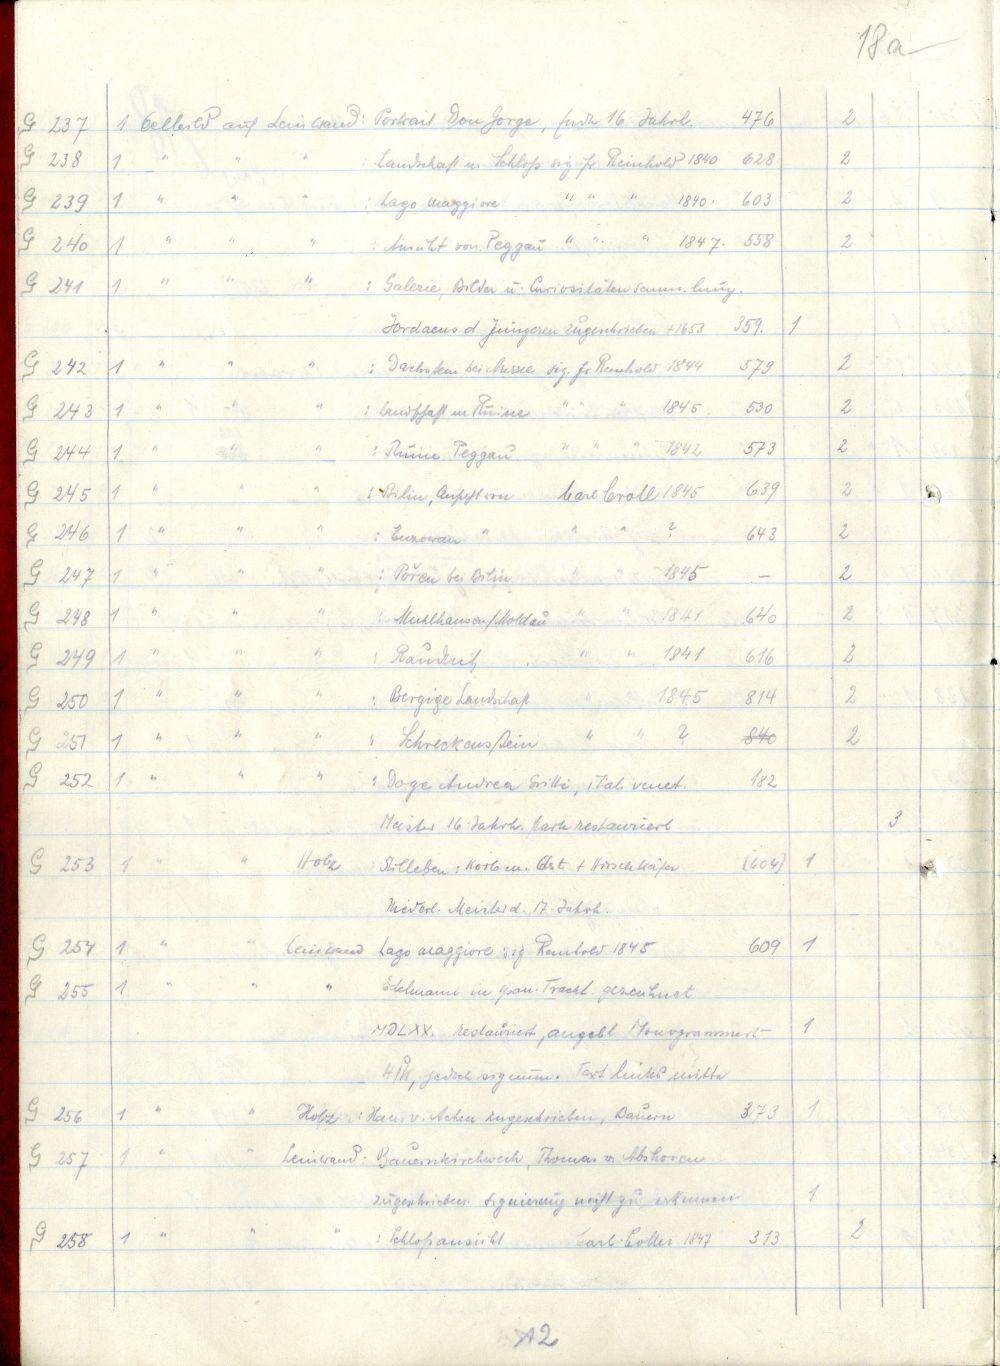 18a
G 237 1 Oelbild auf Leinwand: Portrait Don Jorge, 16 Jahrh. 476 2
G 238 1 " " " : Landschaft m Schloß sig fr Reinhold 1840 628 2
G 239 1 " " " : Lago maggiore " " " 1840. 603 2
G 240 1 " " " : Ansicht von Peggau " " " 1847. 558 2
G 241 1 " " " : Galerie, Bilder u. Curiositäten Sammlung.
Jordaens d Jüngeren zugeschrieben +1653 359. 1
G 242 1 " " " : Dachstein bei Aussee sig. fr Reinhold 1844 579 2
G 243 1 " " " : Landschaft m Ruine " " " 1845 530 2
G 244 1 " " " : Ruine Peggau " " " 1842 573 2
G 245 1 " " " : Bilin, Ansicht von Carl Croll 1845 639 2
G 246 1 " " " : " " " ? 643 2
G 247 1 " " " : Pořen bei Bilin " " 1845 — 2
G 248 1 " " " : Muhlhausen/Moldau " " 1841 640 2
G 249 1 " " " : Raudnitz " " 1841 616 2
G 250 1 " " " : Bergige Landschaft " 1845 814 2
G 251 1 " " " : Schreckenstein " " ? 840 2
G 252 1 " " " : Doge Andrea Gritti, ital. venet. 182
Meister 16. Jahrh. stark restauriert 3
G 253 1 " " Holz : Stilleben: Korb m. Obst + Hirschkäfer (604) 1
Niederl. Meister d. 17. Jahrh.
G 254 1 " " Leinwand Lago maggiore sig Reinhold 1845 609 1
G 255 1 " " " Edelmann in span. Tracht. gezeichnet
MDLXX. restauriert, angebl Monogrammiert 1
jedoch Text links mitte
G 256 1 " " Holz : Han. v. Achen zugeschrieben, Bauern 373 1
G 257 1 " " Leinwand: Bauernkirchweih, Thomas v Abshoven
zugeschrieben. Signierung nicht zu erkennen 1
G 258 1 " " " : Schloßansicht Carl Croll 1847 313 2
12